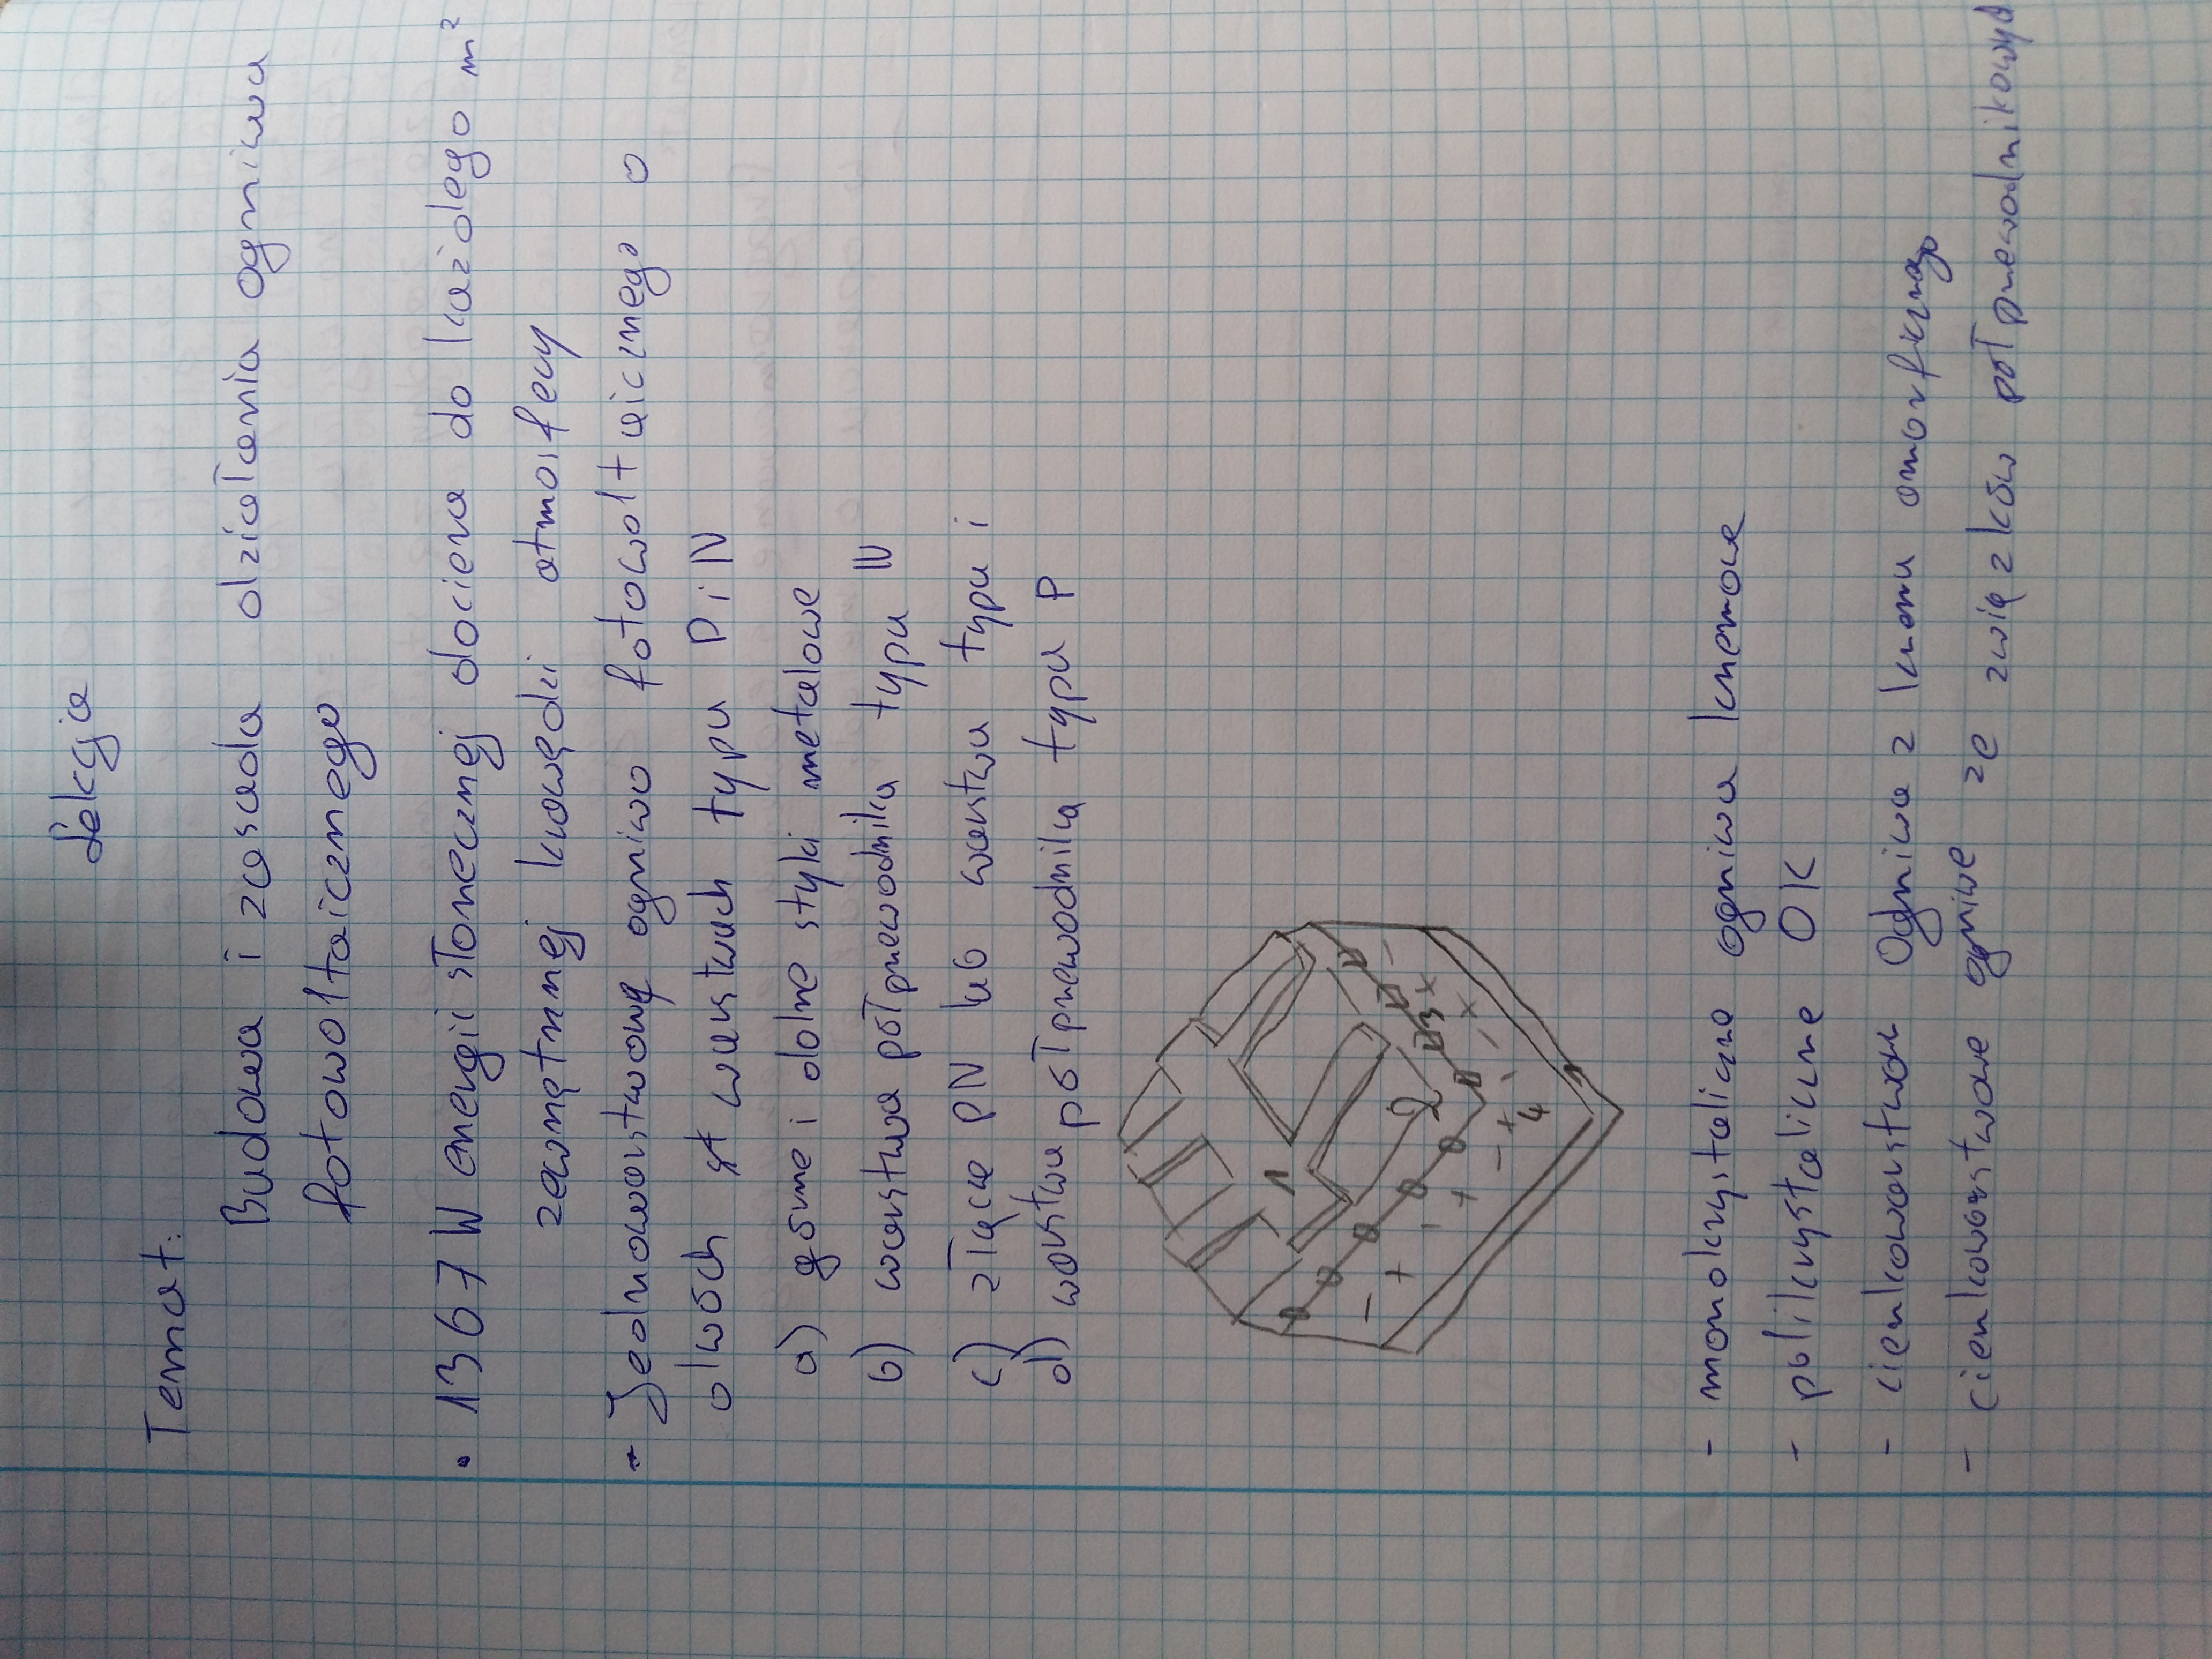 Lekcja
Temat:
Budowa i zasada działania ogniwa
fotowoltaicznego
• 1367 W energii słonecznej dociera do każdego m²
zewnętrznej krawędzi atmosfery
• Jednowarstwowe ogniwo fotowoltaicznego o
dwóch warstwach typu P i N
a) górne i dolne styki metalowe
b) warstwa półprzewodnika typu N
c) złącze PN lub warstwa typu i
d) warstwa półprzewodnika typu P
1
2
3
4
- monokrystaliczne ogniwa krzemowe
- polikrystaliczne OK
- cienkowarstwowe Ogniwa z krzemu amorficznego
- cienkowarstwowe ogniwe ze związków półprzewodnikowych